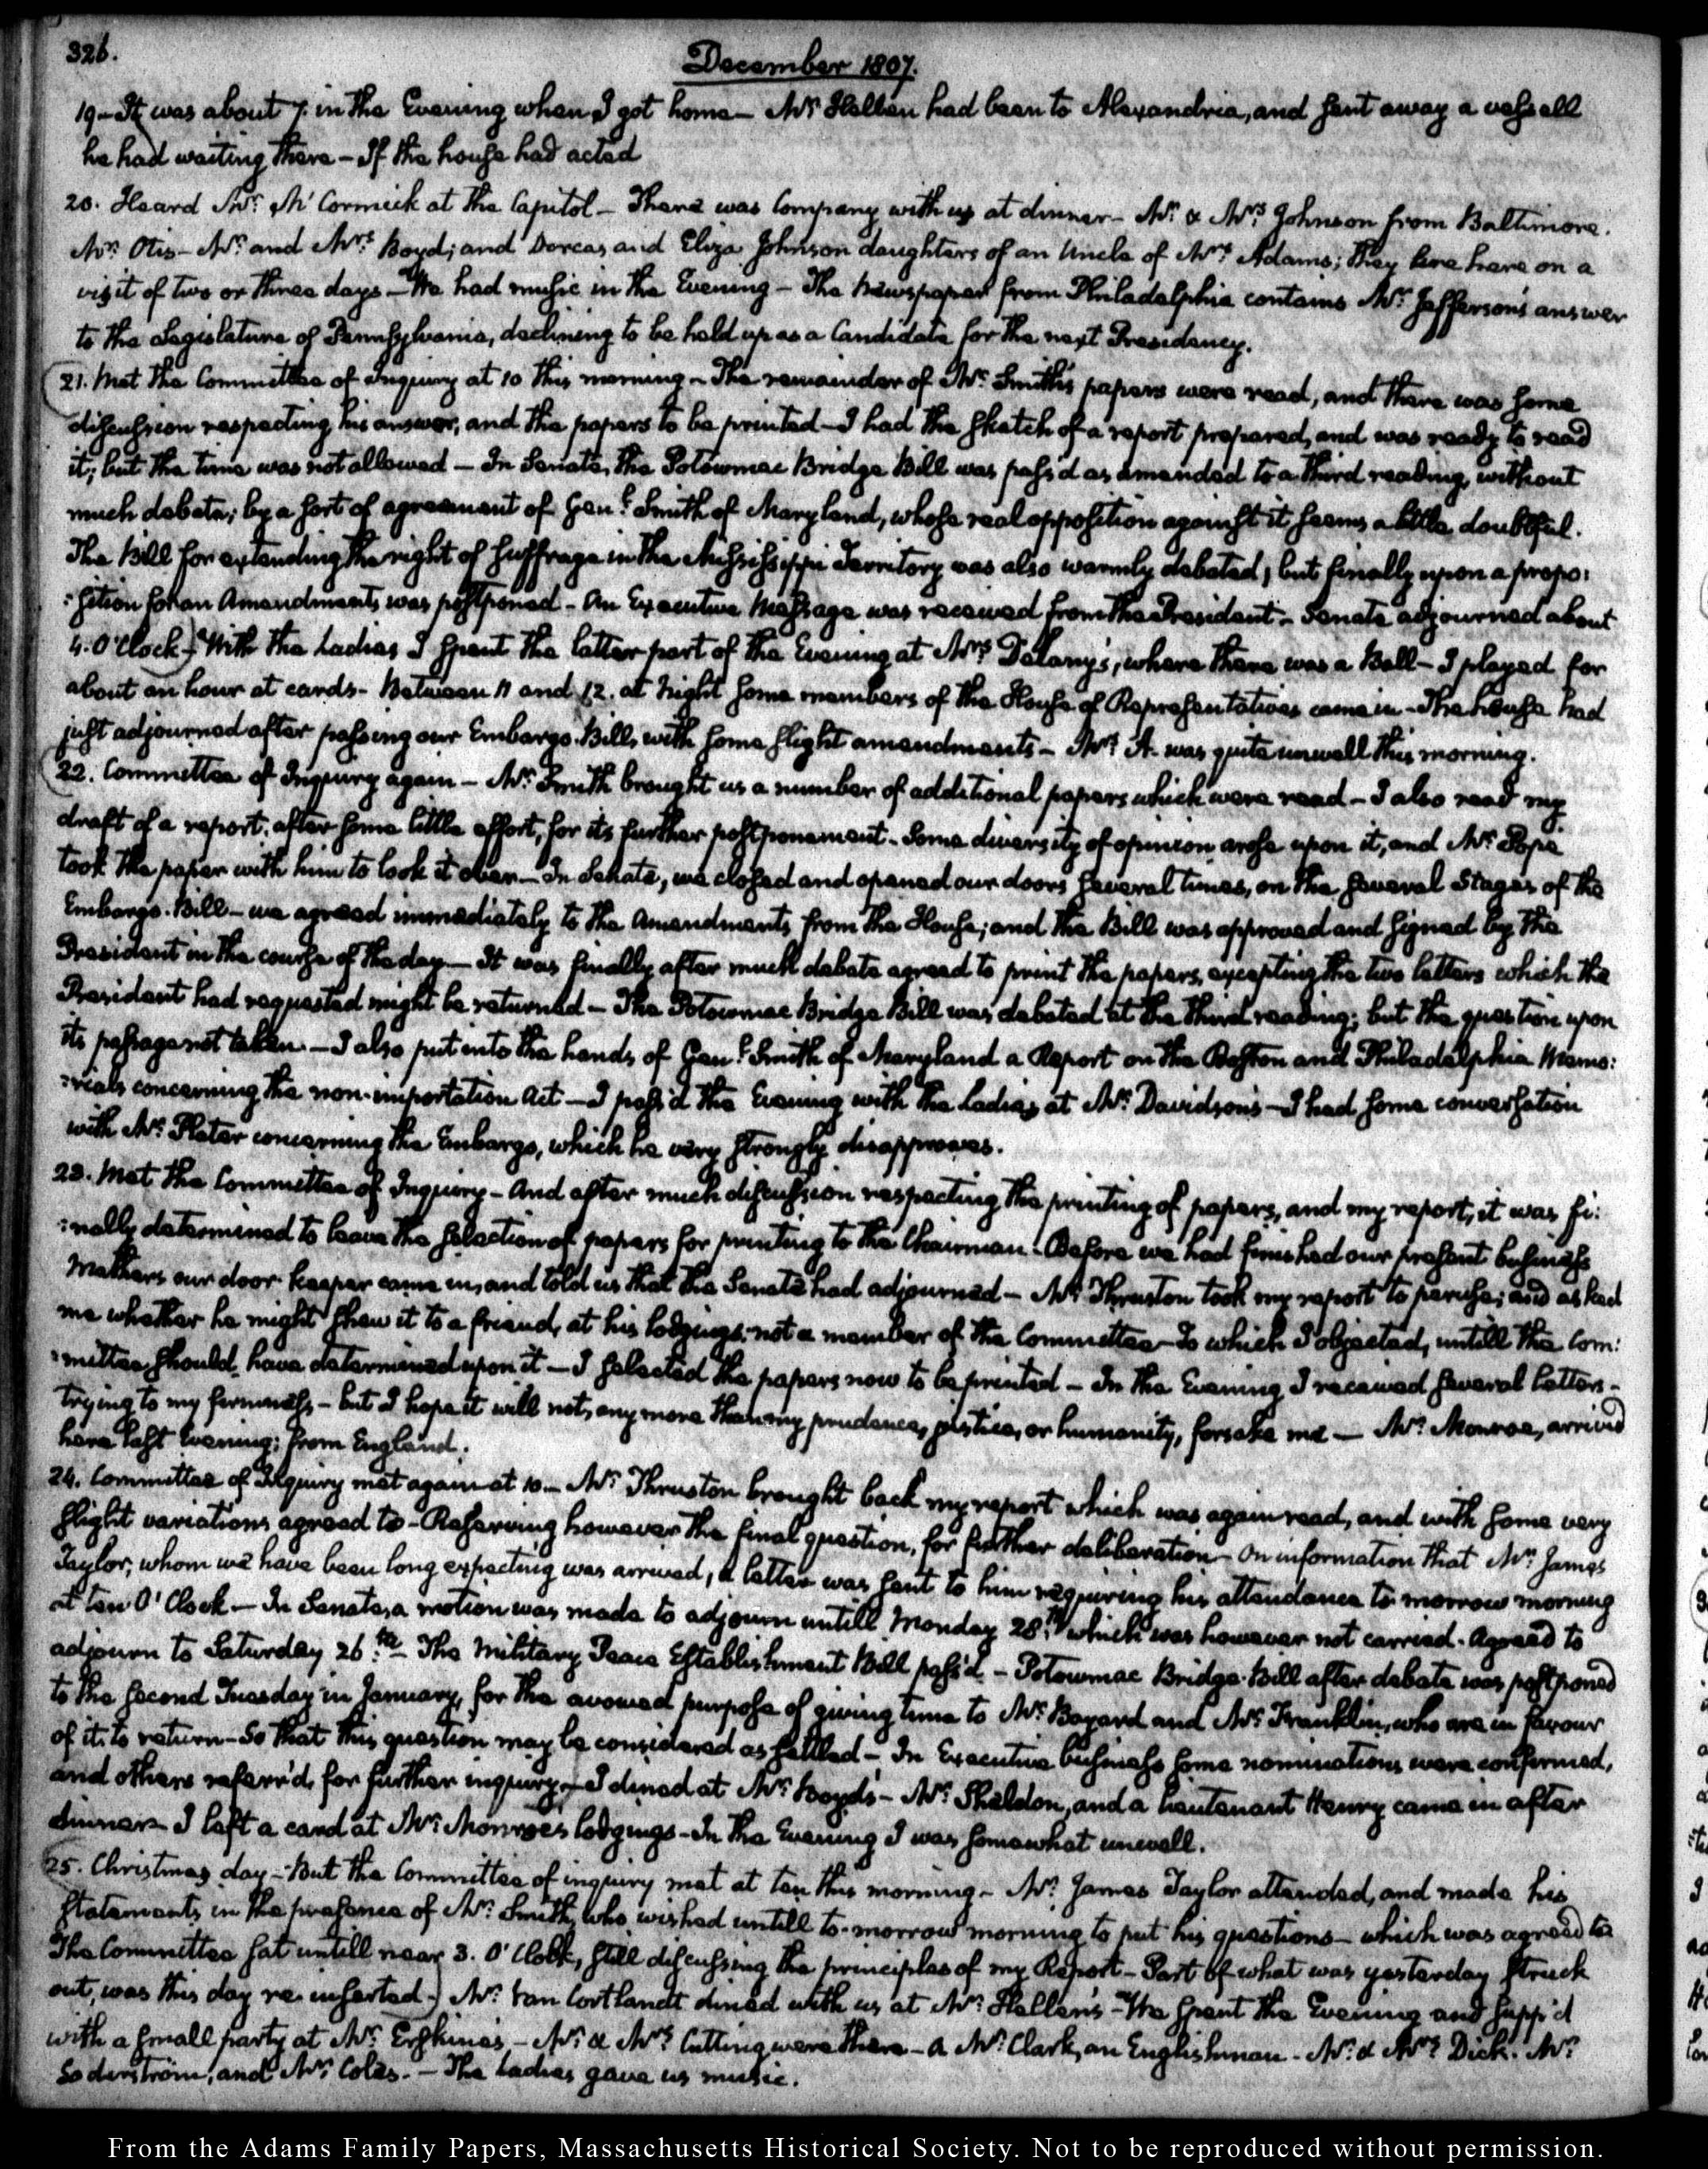 326.
December 1807.
19- It was about 7. in the Evening when I got home- Mr. Hellen had been to Alexandria, and sent away a vessell
he had waiting there - If the house had acted
20. Heard Mr. McCormick at the Capitol - There was Company with us at dinner - Mr. & Mrs. Johnson from Baltimore.
Mr. Otis - Mr. and Mrs. Boyd; and Dorcas and Eliza Johnson daughters of an Uncle of Mrs. Adams; They are here on a
visit of two or three days - We had music in the Evening - The Newspaper from Philadelphia contains Mr. Jefferson's answer
to the Legislature of Pennsylvania, declining to be held up as a Candidate for the next Presidency.
21. Met the Committee of Inquiry at 10 this morning - The remainder of Mr. Smith's papers were read, and there was some
discussion respecting his answer, and the papers to be printed - I had the sketch of a report prepared, and was ready to read
it; but the time was not allowed - In Senate, the Potowmac Bridge Bill was pass'd as amended to a third reading, without
much debate; by a sort of agreement of Genl. Smith of Maryland, whose real opposition against it seems a little doubtful.
The Bill for extending the right of suffrage in the Mississippi Territory was also warmly debated; but finally upon a propo:
:sition for an Amendment, was postponed - An Executive Message was received from the President - Senate adjourned about
4. O'Clock.) With the Ladies I spent the latter part of the Evening at Mrs. Delany's, where there was a Ball - I played for
about an hour at cards - Between 11 and 12. at Night some members of the House of Representatives came in - The house had
just adjourned after passing our Embargo Bill, with some slight amendments - Mrs. A. was quite unwell this morning.
22. Committee of Inquiry again - Mr. Smith brought us a number of additional papers which were read - I also read my
draft of a report; after some little effort, for its further postponement. Some diversity of opinion arose upon it, and Mr. Pope
took the paper with him to look it over - In Senate, we closed and opened our doors several times, on the several Stages of the
Embargo-Bill - we agreed immediately to the Amendments from the House; and the Bill was approved and signed by the
President in the course of the day - It was finally after much debate agreed to print the papers, excepting the two letters which the
President had requested might be returned - The Potowmac Bridge Bill was debated at the third reading; but the question upon
its passage not taken - I also put into the hands of Genl. Smith of Maryland a Report on the Boston and Philadelphia Memo:
:rials concerning the non-importation Act - I pass'd the Evening with the Ladies at Mr. Davidson's - I had some conversation
with Mr. Plater concerning the Embargo, which he very strongly disapproves.
23. Met the Committee of Inquiry - And after much discussion respecting the printing of papers, and my report, it was fi:
:nally determined to leave the selection of papers for printing to the Chairman. Before we had finished our present business
Mathers our door keeper came in, and told us that the Senate had adjourned - Mr. Thruston took my report to peruse; and asked
me whether he might shew it to a friend, at his lodgings, not a member of the Committee - To which I objected, untill the Com:
:mittee should have determined upon it - I selected the papers now to be printed - In the Evening I received several letters -
trying to my firmness - but I hope it will not, any more than my prudence, justice, or humanity, forsake me - Mr. Monroe, arrived
here last Evening; from England.
24. Committee of Inquiry met again at 10 - Mr. Thruston brought back my report which was again read, and with some very
slight variations agreed to - Reserving however the final question, for further deliberation - On information that Mr. James
Taylor, whom we have been long expecting was arrived, a letter was sent to him requiring his attendance to-morrow morning
at ten O'Clock - In Senate, a motion was made to adjourn untill Monday 28th. which was however not carried. Agreed to
adjourn to Saturday 26.th - The Military Peace Establishment Bill pass'd - Potowmac Bridge-Bill after debate was postponed
to the second Tuesday in January, for the avowed purpose of giving time to Mr. Bayard and Mr. Franklin, who are in favour
of it to return - So that this question may be considered as settled - In Executive business some nominations were confirmed,
and others referr'd, for further inquiry - I dined at Mr. Boyd's - Mr. Sheldon, and a Lieutenant Henry came in after
dinner - I left a card at Mr. Monroe's lodgings - In the Evening I was somewhat unwell.
25. Christmas day - But the Committee of inquiry met at ten this morning - Mr. James Taylor attended, and made his
statements, in the presence of Mr. Smith, who wished untill to-morrow morning to put his questions - which was agreed to
The Committee sat untill near 3. O'Clock, still discussing the principles of my Report - Part of what was yesterday struck
out, was this day re-inserted.) Mr. Van Cortlandt dined with us at Mr. Hellen's - We spent the Evening and supp'd
with a small party at Mr. Erskine's - Mr. & Mrs. Cutting were there - A Mr. Clark, an Englishman - Mr. & Mrs. Dick. Mr.
Soderstrom, and Mr. Coles. - The Ladies gave us music.
From the Adams Family Papers, Massachusetts Historical Society. Not to be reproduced without permission.